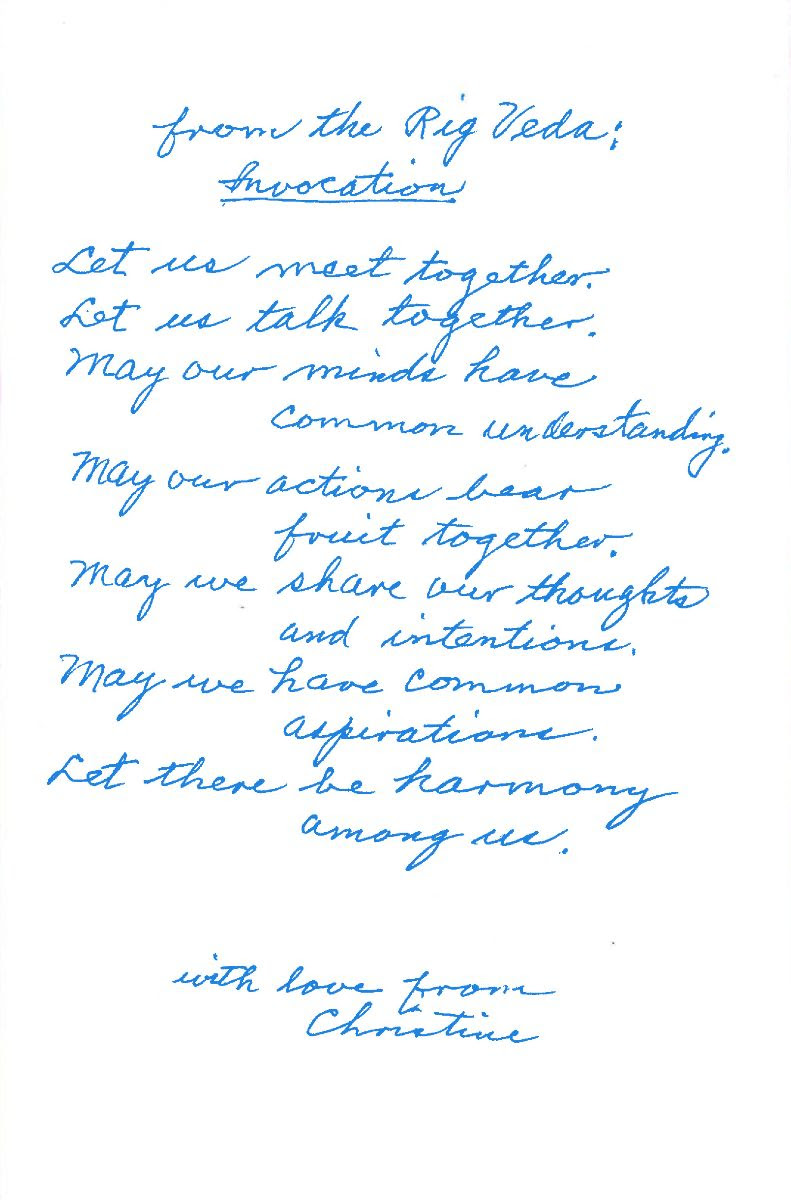 from the Rig Veda:
Invocation
Let us meet together.
Let us talk together.
May our minds have
common understanding.
May our actions bear
fruit together.
May we share our thoughts
and intentions.
May we have common
aspirations.
Let there be harmony
among us.
with love from
Christine